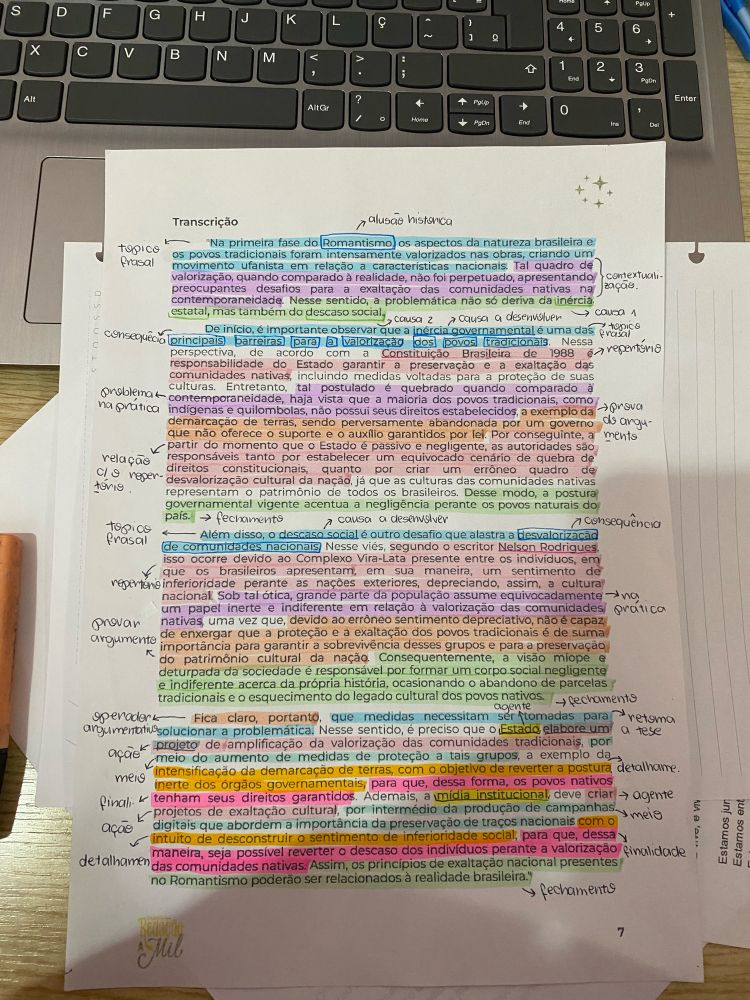 S D F G H J K L Ç ^ ~ º 4 5 6 PgUp +
X C V B N M < , > . : ; ⇧ 1 End 2 3 PgDn
Alt AltGr ? / ° ← Home PgUp PgDn → End 0 Ins , Del Enter
Transcrição
alusão histórica
tópico frasal
"Na primeira fase do Romantismo os aspectos da natureza brasileira e
os povos tradicionais foram intensamente valorizados nas obras, criando um
movimento ufanista em relação a características nacionais. Tal quadro de
valorização, quando comparado à realidade, não foi perpetuado, apresentando
preocupantes desafios para a exaltação das comunidades nativas na
contemporaneidade. Nesse sentido, a problemática não só deriva da inércia
estatal, mas também do descaso social.
contextuali-
zação.
causa 2
causa a desenvolver
causa 1
De início, é importante observar que a inércia governamental é uma das
tópico frasal
consequência
principais barreiras para a valorização dos povos tradicionais. Nessa
perspectiva, de acordo com a Constituição Brasileira de 1988 é
repertório
responsabilidade do Estado garantir a preservação e a exaltação das
comunidades nativas, incluindo medidas voltadas para a proteção de suas
culturas. Entretanto, tal postulado é quebrado quando comparado à
problema na prática
contemporaneidade, haja vista que a maioria dos povos tradicionais, como
indígenas e quilombolas, não possui seus direitos estabelecidos, a exemplo da
prova do argu-
mento
demarcação de terras, sendo perversamente abandonada por um governo
que não oferece o suporte e o auxílio garantidos por lei. Por conseguinte, a
partir do momento que o Estado é passivo e negligente, as autoridades são
relação c/ o reper-
tório.
responsáveis tanto por estabelecer um equivocado cenário de quebra de
direitos constitucionais, quanto por criar um errôneo quadro de
desvalorização cultural da nação, já que as culturas das comunidades nativas
representam o patrimônio de todos os brasileiros. Desse modo, a postura
governamental vigente acentua a negligência perante os povos naturais do
país.
fechamento
causa a desenvolver
consequência
tópico frasal
Além disso, o descaso social é outro desafio que alastra a desvalorização
de comunidades nacionais. Nesse viés, segundo o escritor Nelson Rodrigues,
isso ocorre devido ao Complexo Vira-Lata presente entre os indivíduos, em
que os brasileiros apresentam, em sua maneira, um sentimento de
repertório
inferioridade perante as nações exteriores, depreciando, assim, a cultura
nacional. Sob tal ótica, grande parte da população assume equivocadamente
na prática
um papel inerte e indiferente em relação à valorização das comunidades
nativas, uma vez que, devido ao errôneo sentimento depreciativo, não é capaz
provar argumento
de enxergar que a proteção e a exaltação dos povos tradicionais é de suma
importância para garantir a sobrevivência desses grupos e para a preservação
do patrimônio cultural da nação. Consequentemente, a visão míope e
deturpada da sociedade é responsável por formar um corpo social negligente
e indiferente acerca da própria história, ocasionando o abandono de parcelas
tradicionais e o esquecimento do legado cultural dos povos nativos.
fechamento
agente
operador argumentativo
Fica claro, portanto, que medidas necessitam ser tomadas para
retoma a tese
solucionar a problemática. Nesse sentido, é preciso que o Estado, elabore um
ação
projeto de amplificação da valorização das comunidades tradicionais, por
meio
meio do aumento de medidas de proteção a tais grupos, a exemplo da
intensificação da demarcação de terras, com o objetivo de reverter a postura
detalhame.
inerte dos órgãos governamentais, para que, dessa forma, os povos nativos
finali.
tenham seus direitos garantidos. Ademais, a mídia institucional, deve criar
agente
ação
projetos de exaltação cultural, por intermédio da produção de campanhas
meio
digitais que abordem a importância da preservação de traços nacionais com o
detalhamen
intuito de desconstruir o sentimento de inferioridade social, para que, dessa
finalidade
maneira, seja possível reverter o descaso dos indivíduos perante a valorização
das comunidades nativas. Assim, os princípios de exaltação nacional presentes
no Romantismo poderão ser relacionados à realidade brasileira."
fechamento
Redação
A Mil
7
Estamos jun
Estamos ent